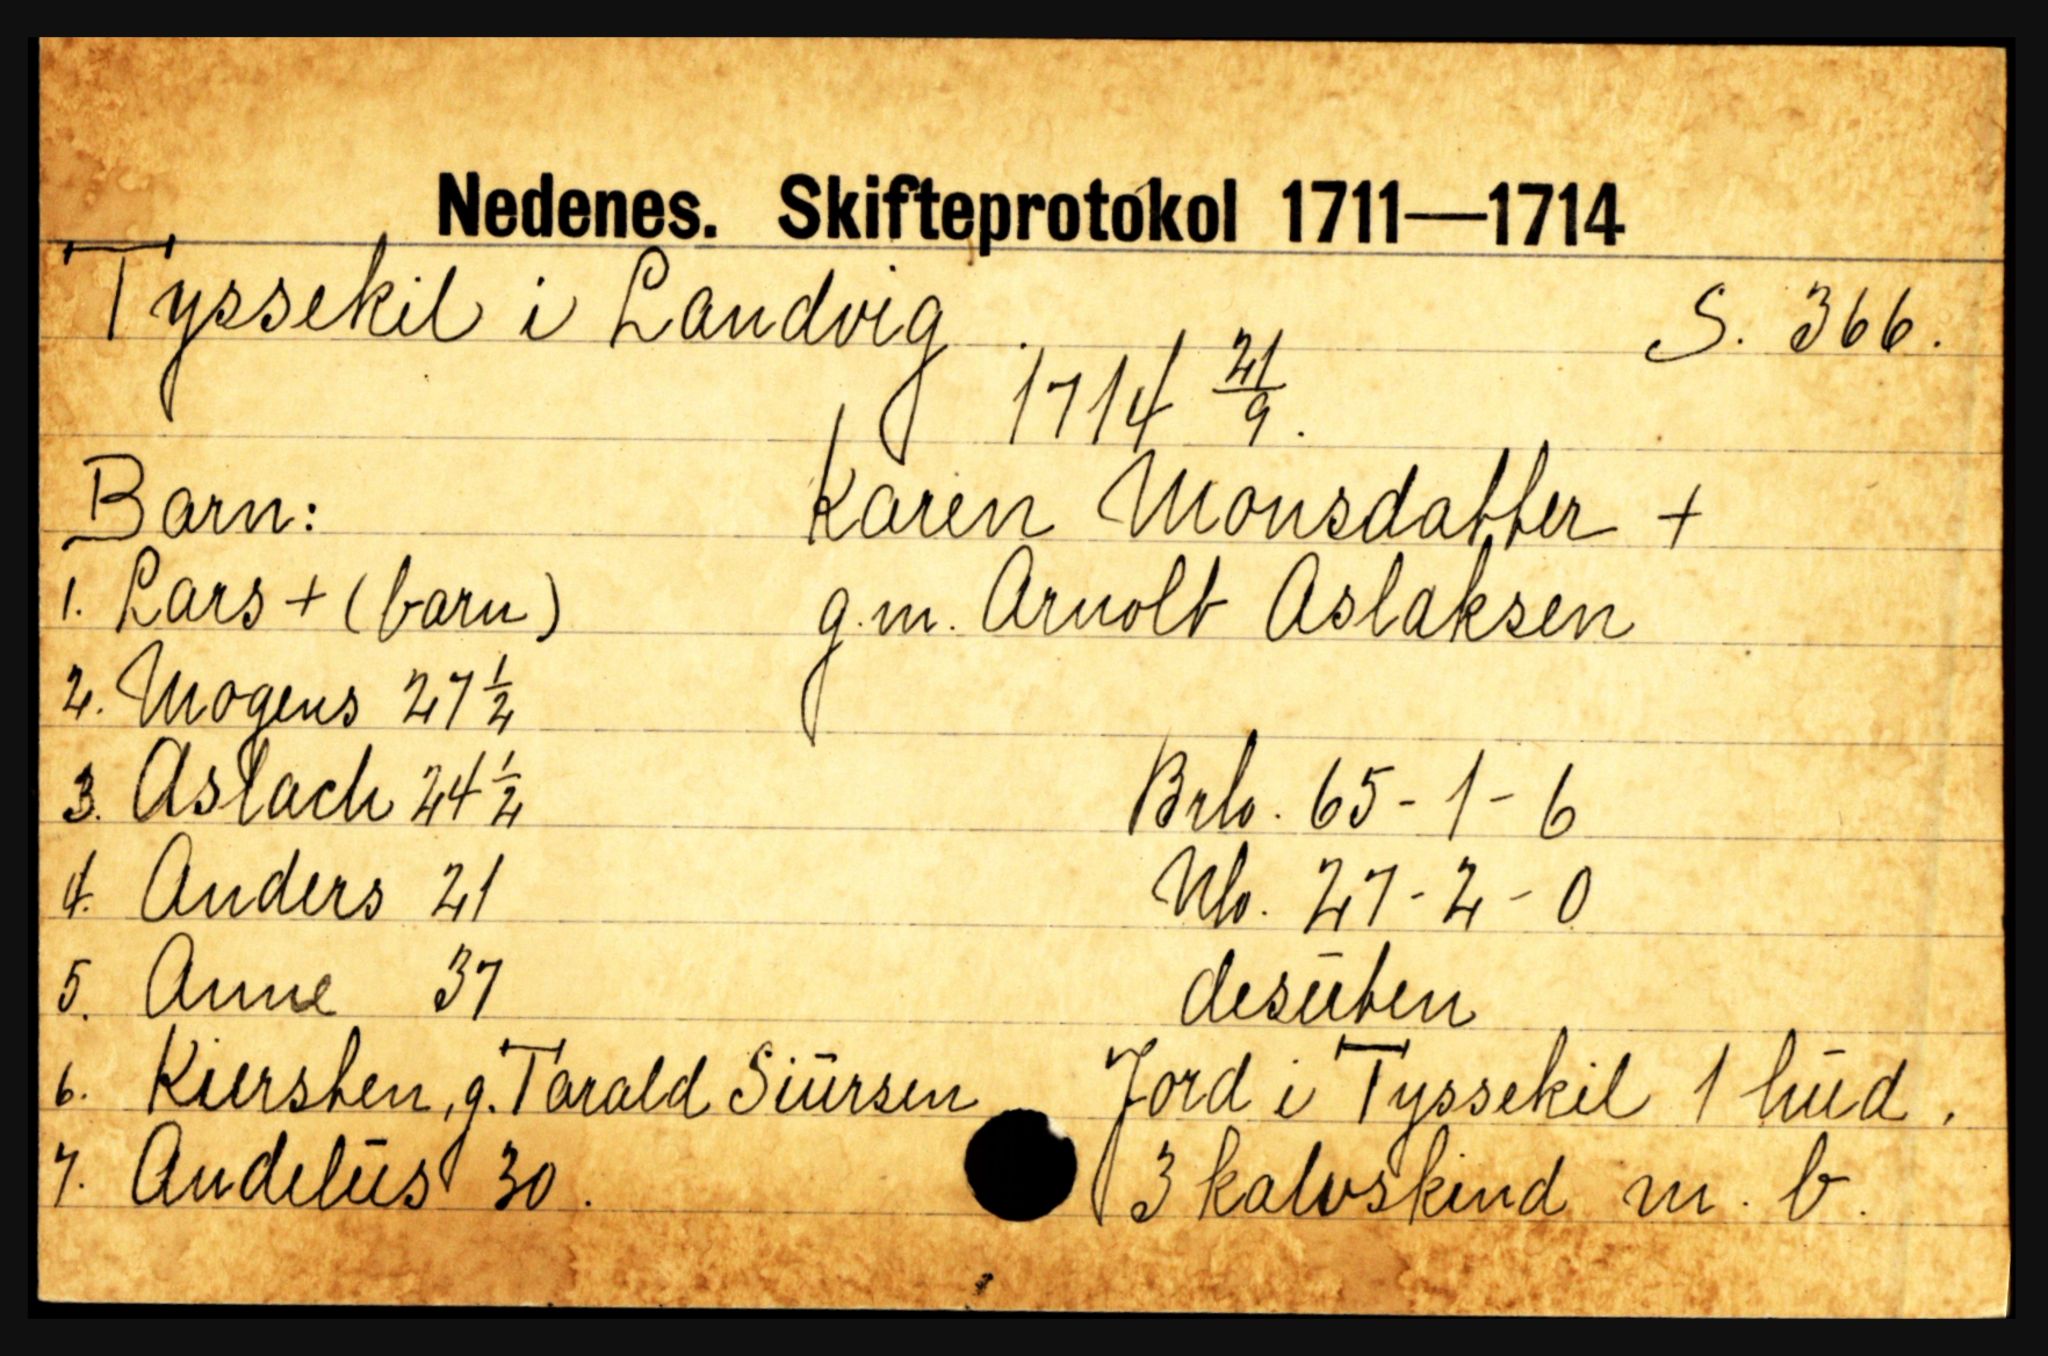 Nedenes. Skifteprotokol 1711—1714
Tyssekil i Landvig. S. 366.
1714 21/9.
Karen Monsdatter +
g.m. Arnolt Aslaksen
Barn:
1. Lars + (barn)
2. Mogens 27 1/2
3. Aslach 24 1/2
4. Anders 21
5. Anne 37
6. Kiersten, g. Tarald Siūrsen
7. Andelūs 30.
Brb. 65-1-6
Nb. 27-2-0
desūten
Jord i Tyssekil 1 hūd,
3 kalvskind m. b.